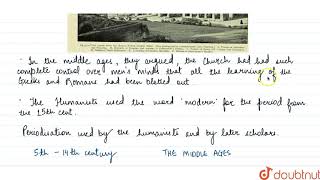 In the middle ages, they argued, the Church had had such
complete control over men's minds that all the learning of the
Greeks and Romans had been blotted out
The Humanists used the word 'modern' for the period from
the 15th cent.
Periodisation used by the humanists and by later scholars.
5th - 14th century THE MIDDLE AGES
doubtnut